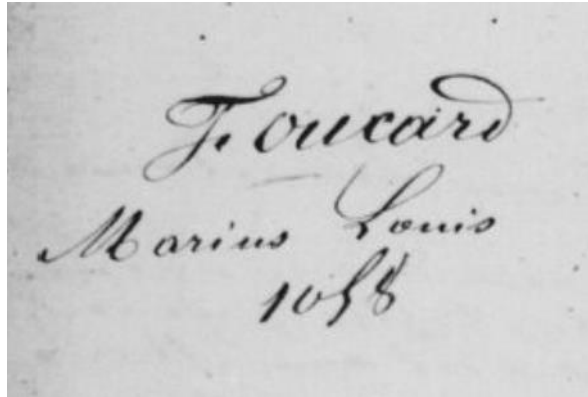 Foucard
Marius Louis
1058